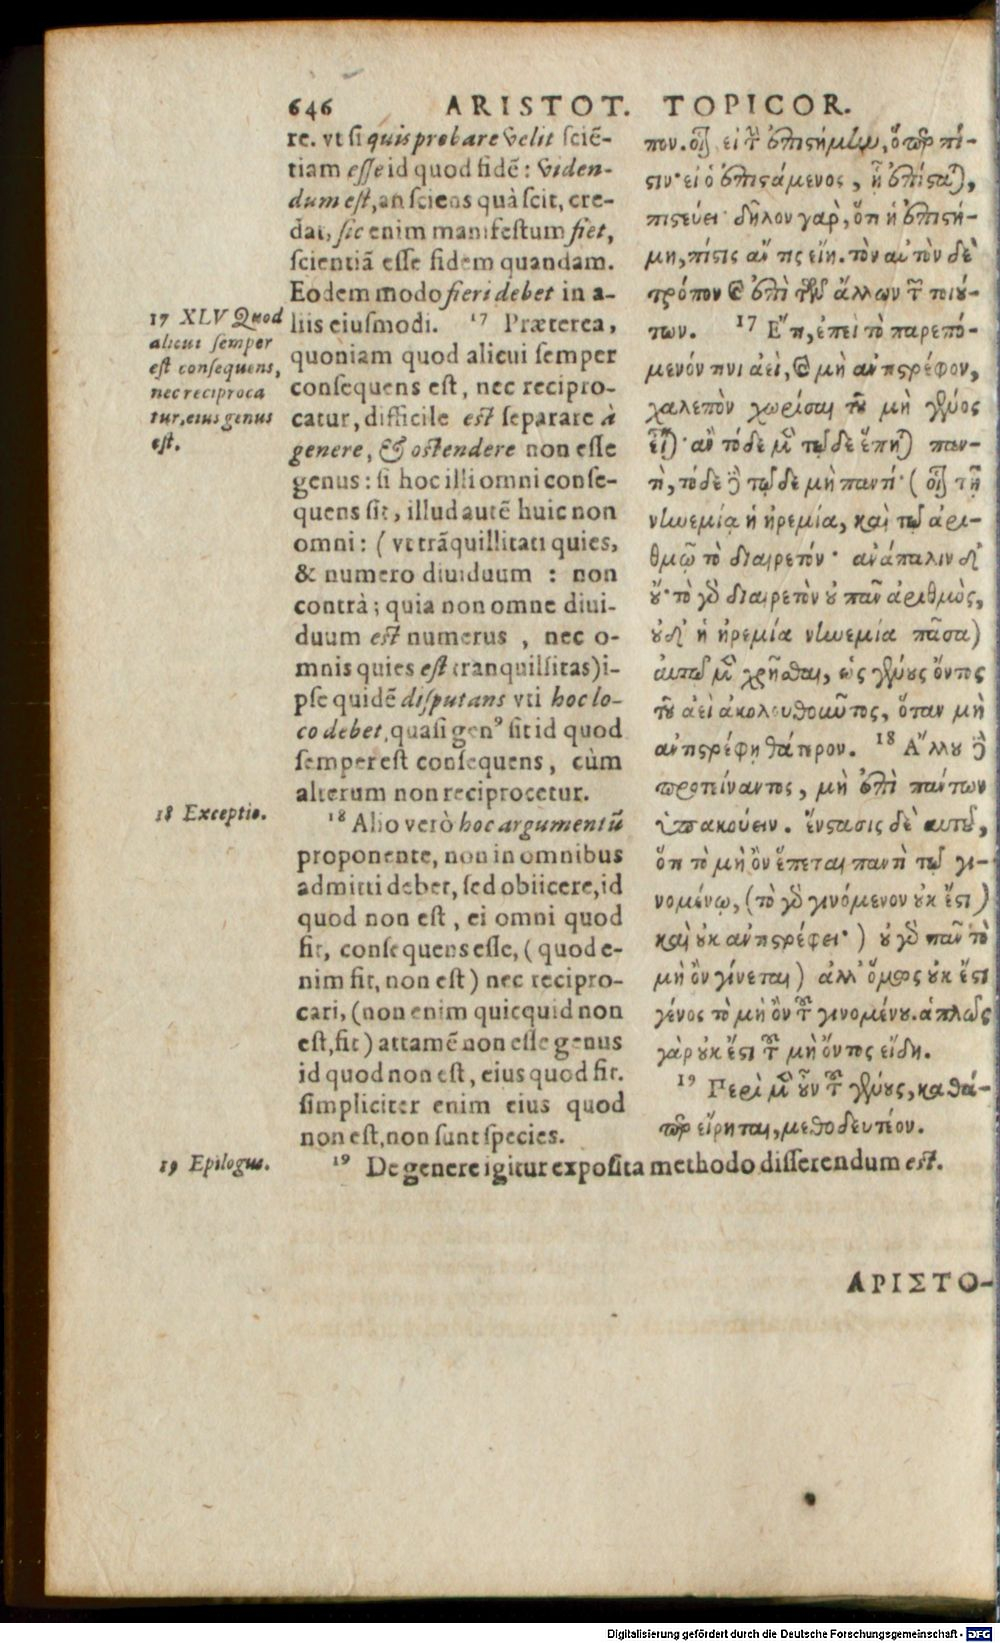 646 ARISTOT. TOPICOR.
re. vt si quis probare velit sciẽ-
tiam esse id quod fidẽ: viden-
dum est, an sciens quà scit, cre-
dat, sic enim manifestum fiet,
scientiã esse fidem quandam.
Eodem modo fieri debet in a-
liis eiusmodi. 17 Præterea,
quoniam quod alicui semper
consequens est, nec recipro-
catur, difficile est separare à
genere, & ostendere non esse
genus: si hoc illi omni conse-
quens sit, illud autẽ huic non
omni: ( vt trãquillitati quies,
& numero diuiduum : non
contrà; quia non omne diui-
duum est numerus , nec o-
mnis quies est tranquillitas) i-
pse quidẽ disputans vti hoc lo-
co debet, quasi genꝰ sit id quod
semper est consequens, cùm
alterum non reciprocetur.
18 Alio verò hoc argumentũ
proponente, non in omnibus
admitti debet, sed obiicere, id
quod non est, ei omni quod
fit, consequens esse, ( quod e-
nim fit, non est ) nec recipro-
cari, (non enim quicquid non
est, fit ) attamẽ non esse genus
id quod non est, eius quod fit.
simpliciter enim eius quod
non est, non sunt species.
17 XLV Quod
alicui semper
est consequens,
nec reciproca
tur, eius genus
est.
18 Exceptio.
19 Epilogus.
πον. οἷον εἰ τὴν ἐπιστήμην, ὅπερ πί-
στιν· εἰ ὁ ἐπιστάμενος, ᾗ ἐπίσταται,
πιστεύει· δῆλον γὰρ, ὅτι ἡ ἐπιστή-
μη, πίστις ἄν τις εἴη. τὸν αὐτὸν δὲ
τρόπον καὶ ἐπὶ τῶν ἄλλων τῶν τοιού-
των. 17 Ἔτι, ἐπεὶ τὸ παρεπό-
μενόν τινι ἀεὶ, καὶ μὴ ἀντιστρέφον,
χαλεπὸν χωρίσαι τοῦ μὴ γένος
εἶναι· ἂν τόδε μὲν τῷδε ἕπηται παν-
τὶ, τόδε δὲ τῷδε μὴ παντί· ( οἷον τῇ
νηνεμίᾳ ἡ ἠρεμία, καὶ τῷ ἀρι-
θμῷ τὸ διαιρετόν· ἀνάπαλιν δ'
οὔ· τὸ γὰρ διαιρετὸν οὐ πᾶν ἀριθμὸς,
οὐδ' ἡ ἠρεμία νηνεμία πᾶσα)
αὐτῷ μὲν χρῆσθαι, ὡς γένους ὄντος
τοῦ ἀεὶ ἀκολουθοῦντος, ὅταν μὴ
ἀντιστρέφῃ θάτερον. 18 Ἄλλου δὲ
προτείναντος, μὴ ἐπὶ πάντων
ὑπακούειν. ἔνστασις δὲ αὐτοῦ,
ὅτι τὸ μὴ ὂν ἕπεται παντὶ τῷ γι-
νομένῳ, (τὸ γὰρ γινόμενον οὐκ ἔστι )
καὶ οὐκ ἀντιστρέφει· ) οὐ γὰρ πᾶν τὸ
μὴ ὂν γίνεται) ἀλλ' ὅμως οὐκ ἔστι
γένος τὸ μὴ ὂν τοῦ γινομένου. ἁπλῶς
γὰρ οὐκ ἔστι τοῦ μὴ ὄντος εἴδη.
19 Περὶ μὲν οὖν τοῦ γένους, καθά-
περ εἴρηται, μεθοδευτέον.
19 De genere igitur exposita methodo disserendum est.
ΑΡΙΣΤΟ-
Digitalisierung gefördert durch die Deutsche Forschungsgemeinschaft - DFG